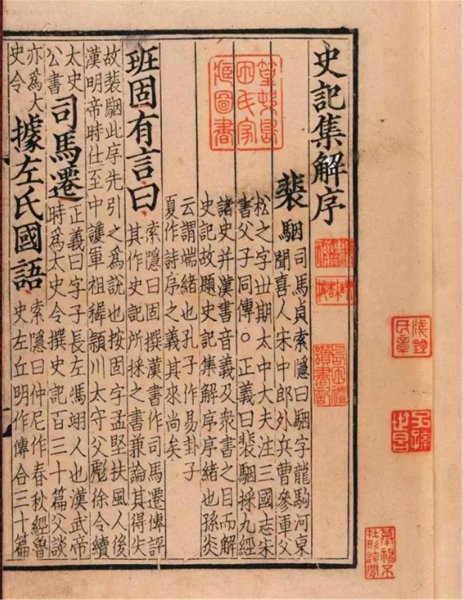 史記集解序
裴駰
司馬貞索隱曰駰字龍駒河東
聞喜人宋中郎外兵曹參軍父
松之字世期太中大夫注三國志宋
書父子同傳○正義曰裴駰採九經
諸史并漢書音義及衆書之目而解
史記故題史記集解序序緒也孫炎
云謂端緒也孔子作易卦子
夏作詩序之義其來尚矣
班固有言曰
索隱曰固撰漢書作司馬遷傳評
其作史記所採之書兼論其得失
故裴駰此序先引之爲說也按固字孟堅扶風人後
漢明帝時仕至中護軍祖稚潁川太守父彪徐令續
太史
公書
司馬遷
正義曰字子長左馮翊人也漢武帝
時爲太史令撰史記百三十篇父談
亦爲太
史令
據左氏國語
索隱曰仲尼作春秋經魯
史左丘明作傳合三十篇
篁邨島
田氏家
藏圖書